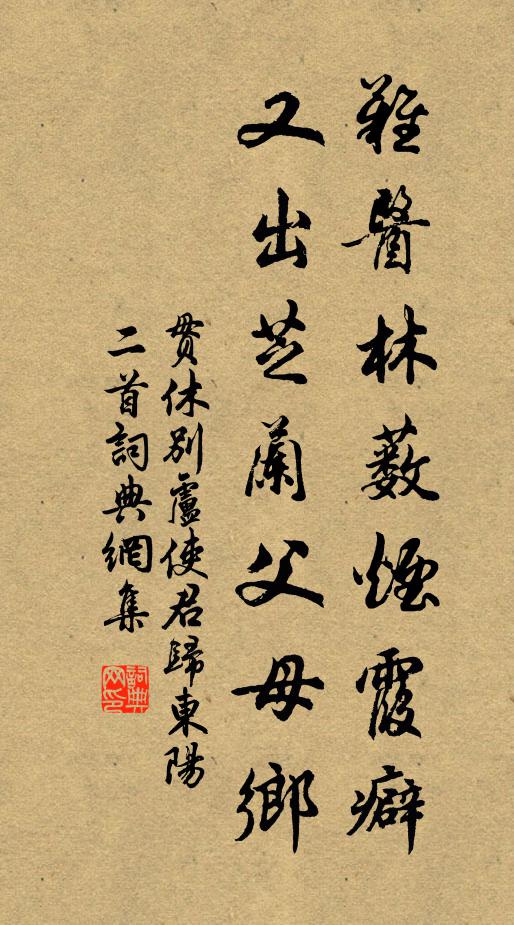 難醫林藪煙霞癖
又出芝蘭父母鄉
貫休別盧使君歸東陽
二首詞典網集
詞典网印